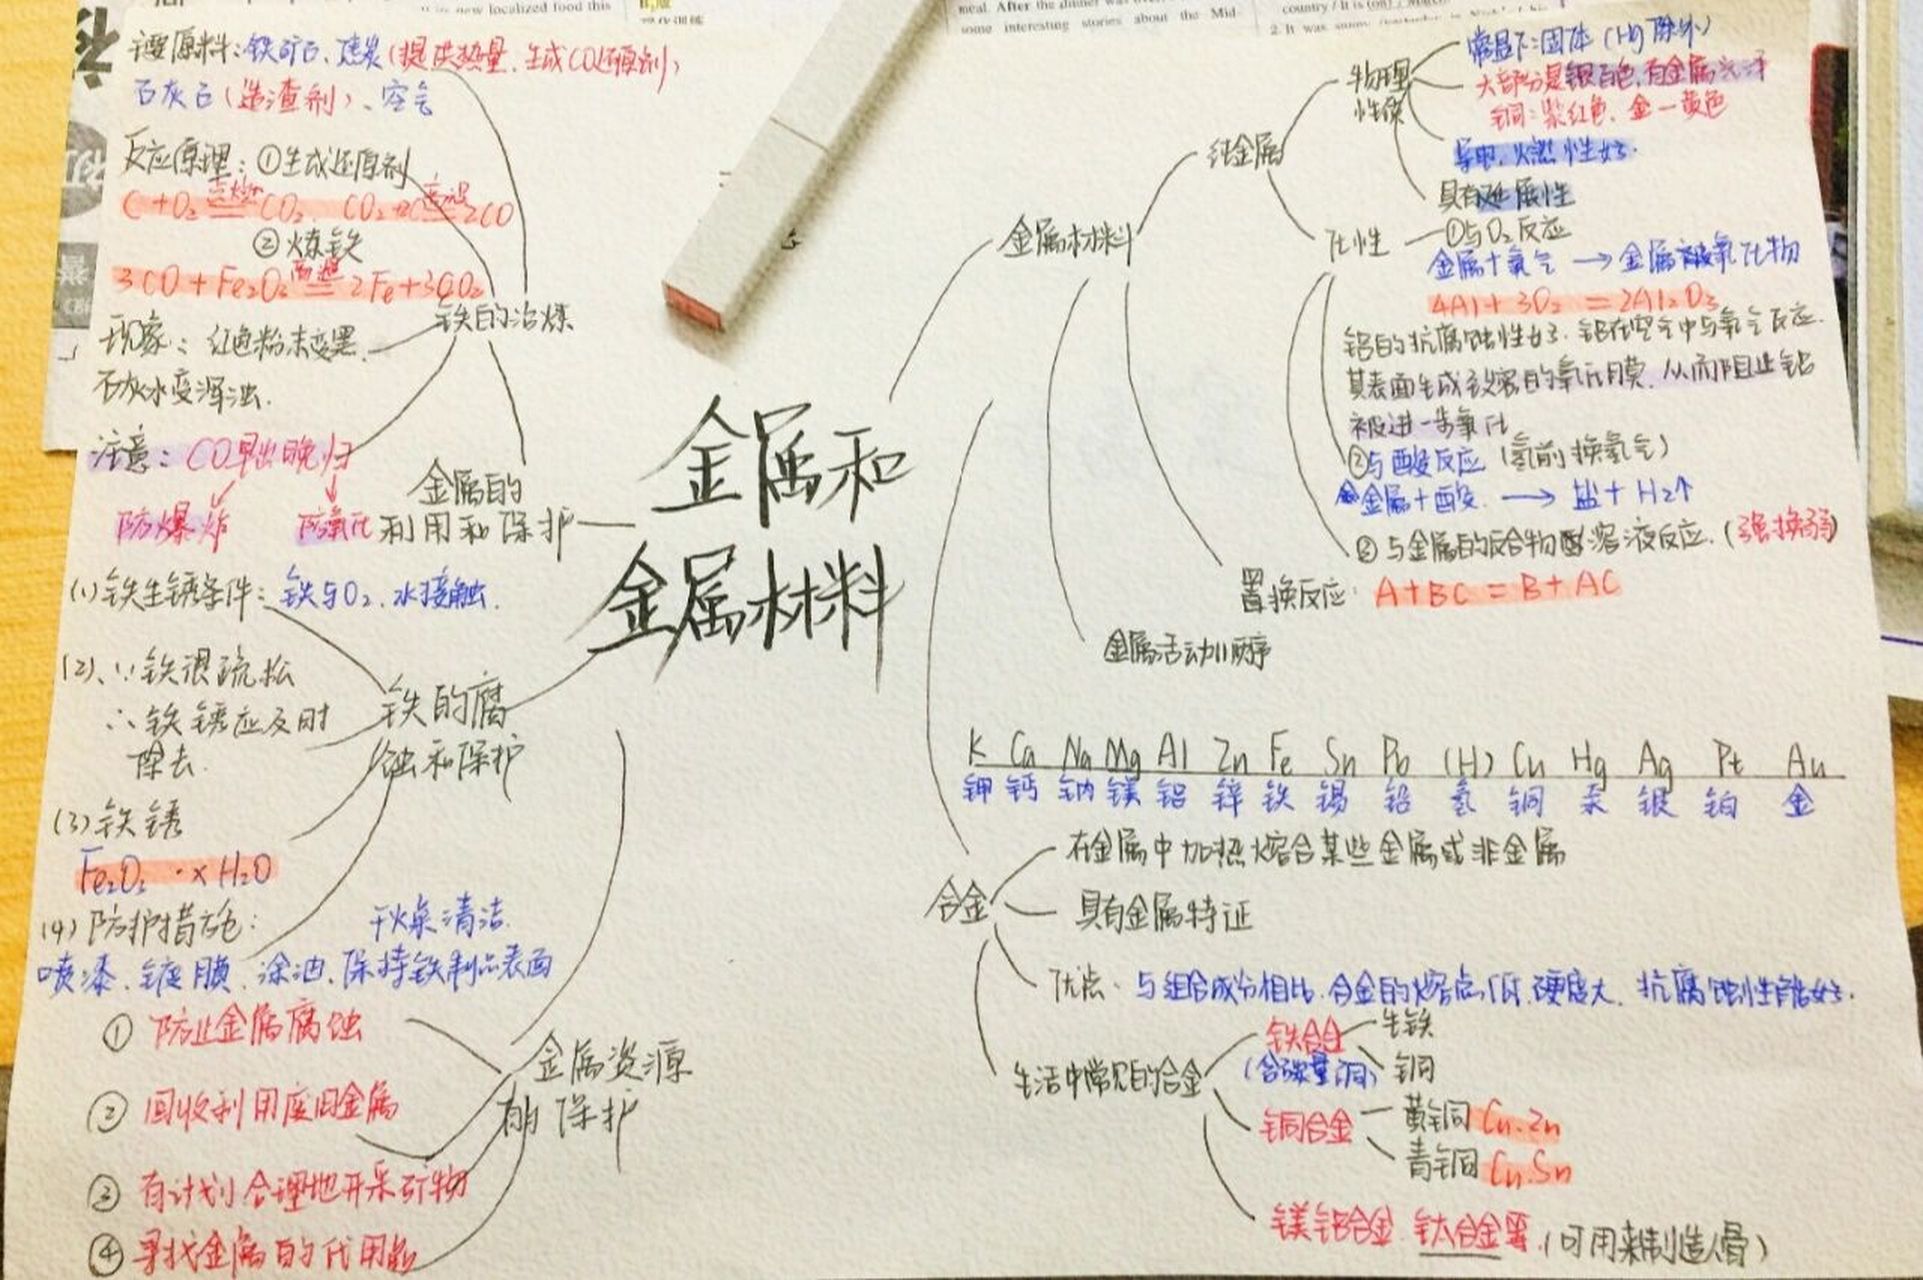 its new localized food this
meal. After the dinner was
some interesting stories about the Mid-
country / It is (on)
2. It was
主要原料:铁矿石、焦炭(提供热量、生成CO还原剂)
石灰石(造渣剂)、空气
反应原理:①生成还原剂
C+O₂ 点燃═ CO₂、CO₂+C 高温═ 2CO
②炼铁
3CO+Fe₂O₃ 高温═ 2Fe+3CO₂
铁的冶炼
现象:红色粉末变黑、
石灰水变浑浊.
注意:CO早出晚归
防爆炸 防氧化
金属的
利用和保护
金属和
金属材料
(1)铁生锈条件:铁与O₂、水接触.
(2)、∵铁很疏松
∴铁锈应及时
除去.
铁的腐
蚀和保护
(3)铁锈
Fe₂O₃·xH₂O
(4)防护措施:
干燥清洁.
喷漆、镀膜、涂油、保持铁制品表面
①防止金属腐蚀
②回收利用废旧金属
③有计划合理地开采矿物
④寻找金属的代用品
金属资源
的保护
金属材料
纯金属
物理
性质
常温下:固体(Hg除外)
大部分是银白色,有金属光泽
铜:紫红色、金—黄色
导电、性好.
具有延展性
化性
①与O₂反应
金属+氧气→金属氧化物
4Al+3O₂=2Al₂O₃
铝的抗腐蚀性好.铝在空气中与氧气反应.
其表面生成致密的氧化膜,从而阻止铝
被进一步氧化
②与酸反应(氢前换氢气)
金属+酸→盐+H₂↑
③与金属的化合物溶液反应.(强换弱)
置换反应:A+BC=B+AC
金属活动顺序
K Ca Na Mg Al Zn Fe Sn Pb (H) Cu Hg Ag Pt Au
钾 钙 钠 镁 铝 锌 铁 锡 铅 氢 铜 汞 银 铂 金
合金
在金属中加热熔合某些金属或非金属
具有金属特征
优点:与组合成分相比,合金的熔点低,硬度大,抗腐蚀性能好.
生活中常见的合金
铁合金
(含碳量不同)
生铁
钢
铜合金
黄铜 Cu.Zn
青铜 Cu.Sn
镁铝合金、钛合金等.(可用来制造人骨)